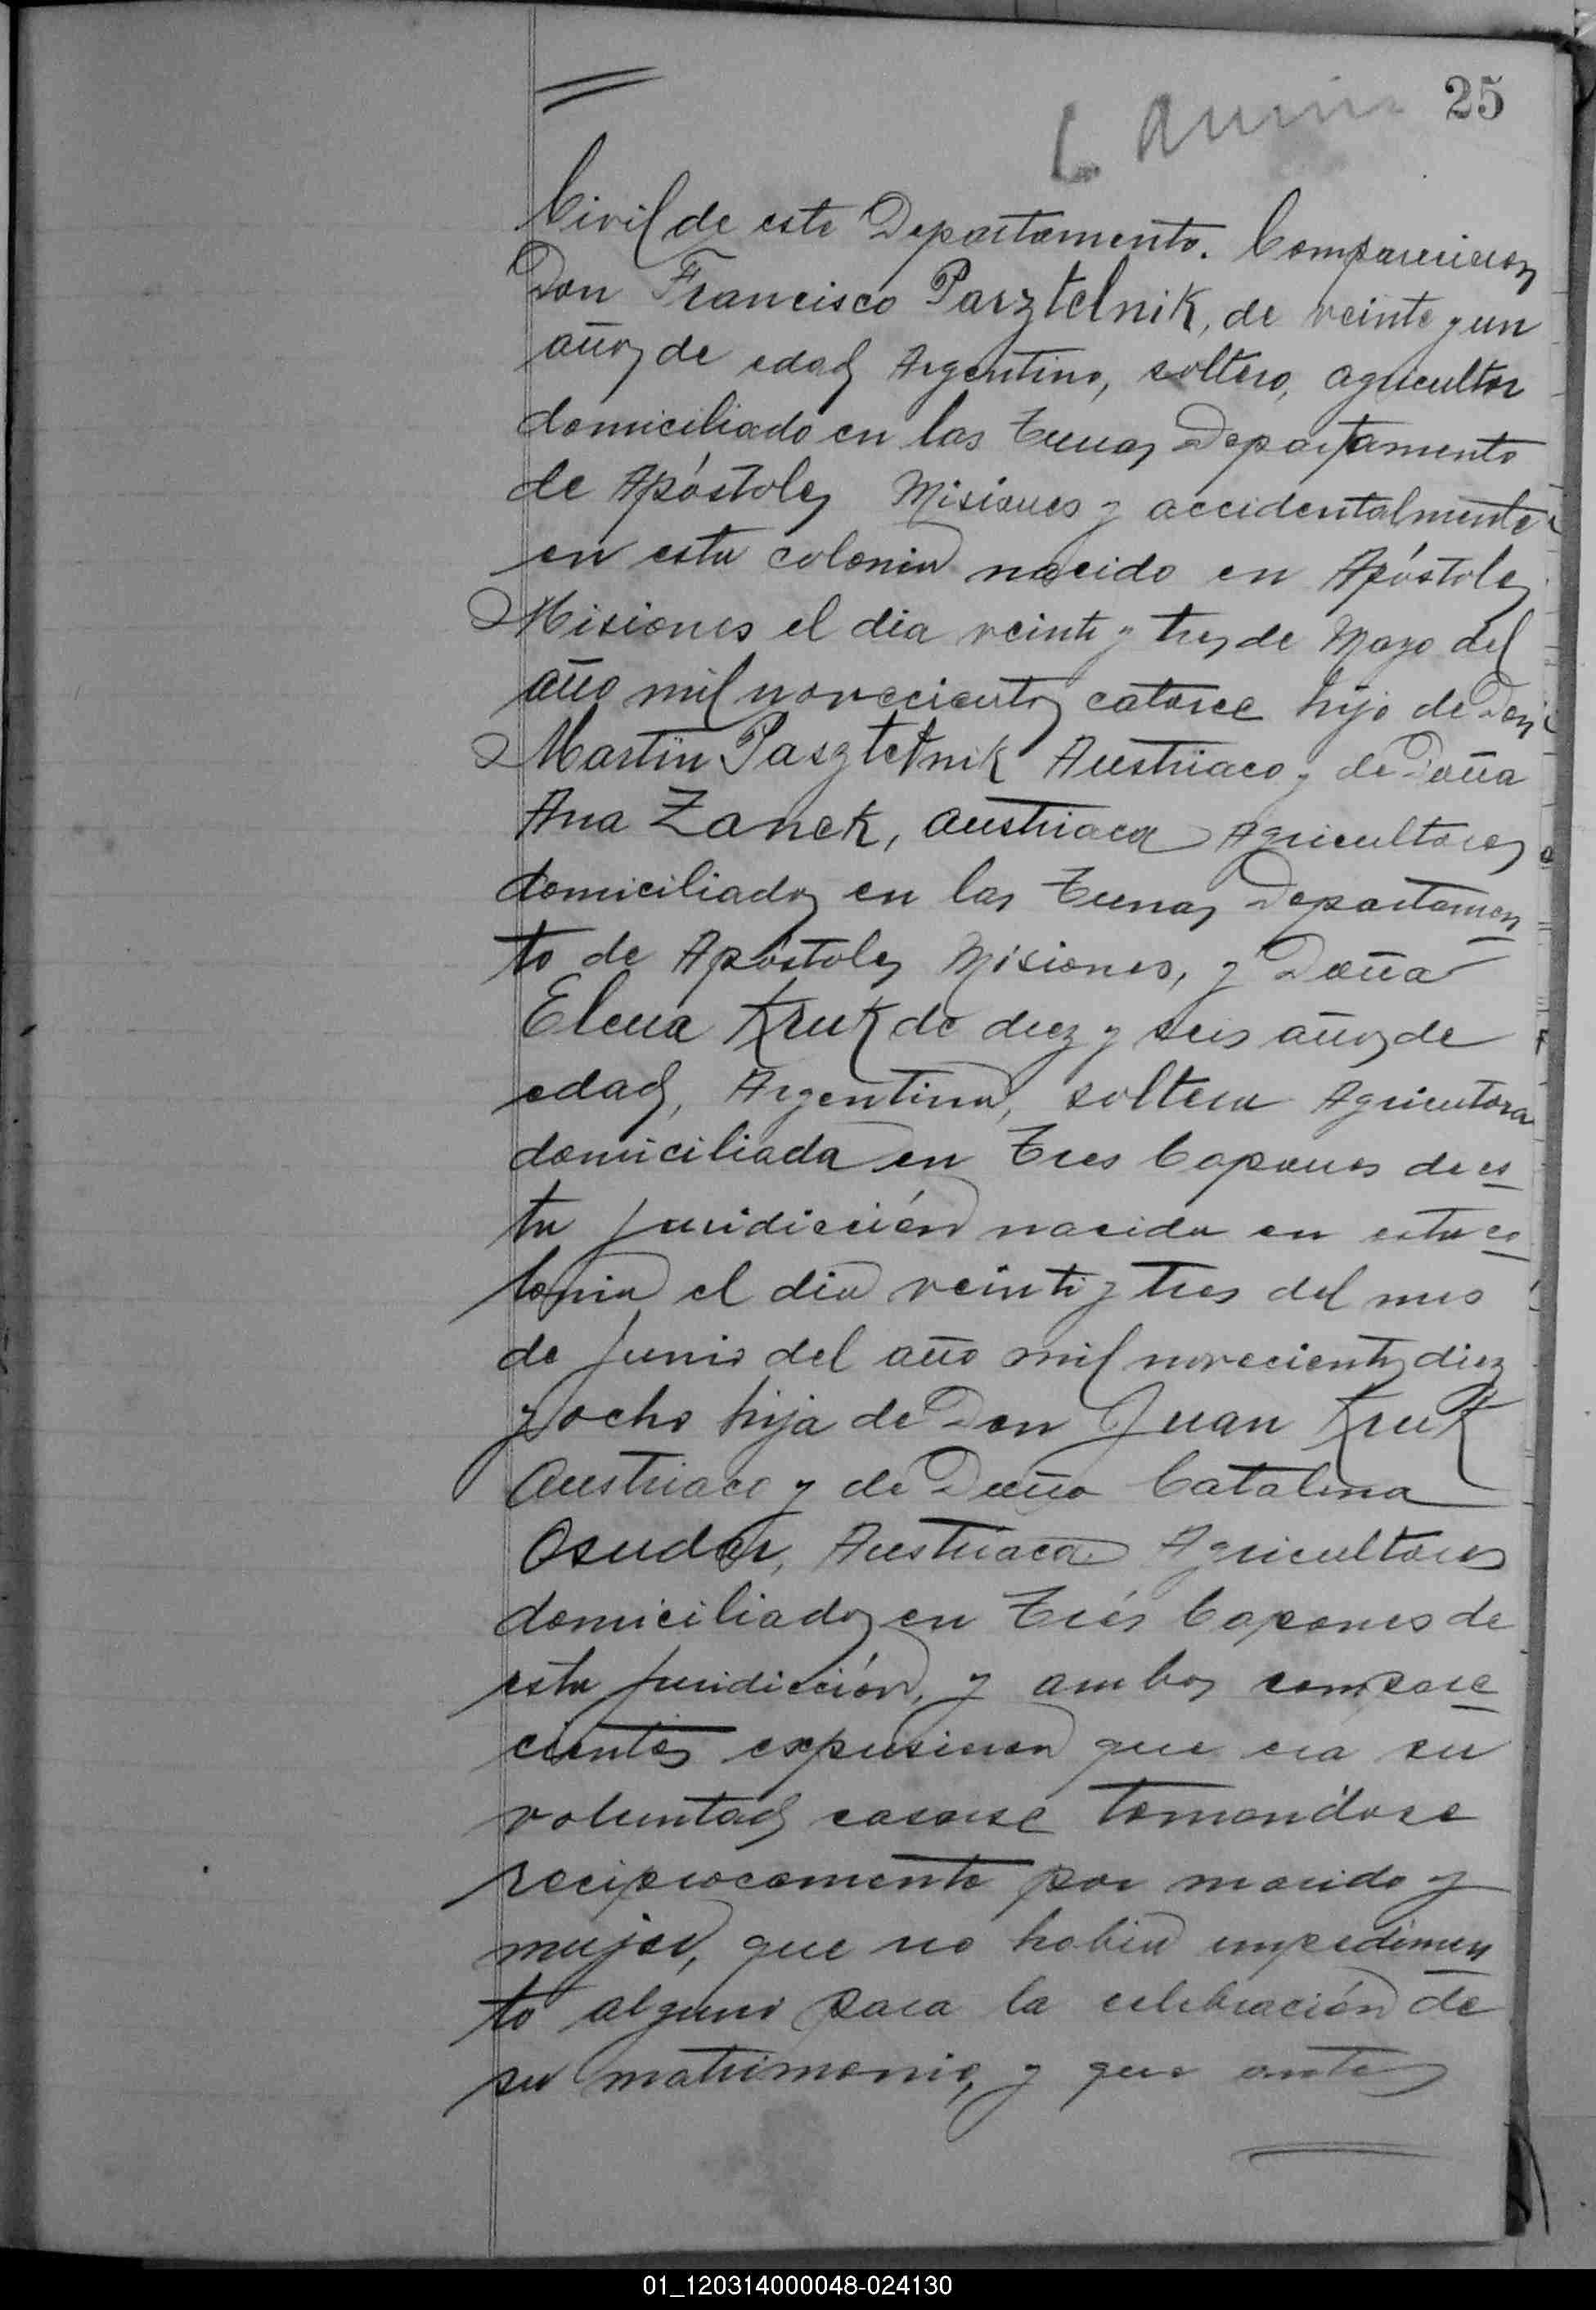 25
Civil de este Departamento. Comparecieron
Don Francisco Parztelnik, de veinte y un
años de edad Argentino, soltero, agricultor
domiciliado en las Tunas Departamento
de Apóstoles Misiones y accidentalmente
en esta colonia nacido en Apóstoles
Misiones el dia veinte y tres de Mayo del
año mil novecientos catorce hijo de Don
Martin Pasztelnik Austriaco y de Doña
Ana Zanek, Austriaca Agricultores
domiciliados en las Tunas Departamen
to de Apóstoles Misiones, y Doña
Elena Kruk de diez y seis años de
edad, Argentina, soltera Agricutora
domiciliada en Tres Capones de es
ta juridicción nacida en esta co
lonia el dia veinte y tres del mes
de Junio del año mil novecientos diez
y ocho hija de Don Juan Kruk
Austriaco y de Doña Catalina
Osudar, Austriaca Agricultores
domiciliados en Trés Capones de
esta juridicción, y ambos compare
cientes expusieron que era su
voluntad casarse tomandose
reciprocamente por marido y
mujer, que no habia impedimen
to alguno para la celebración de
su matrimonio, y que antes
01_120314000048-024130